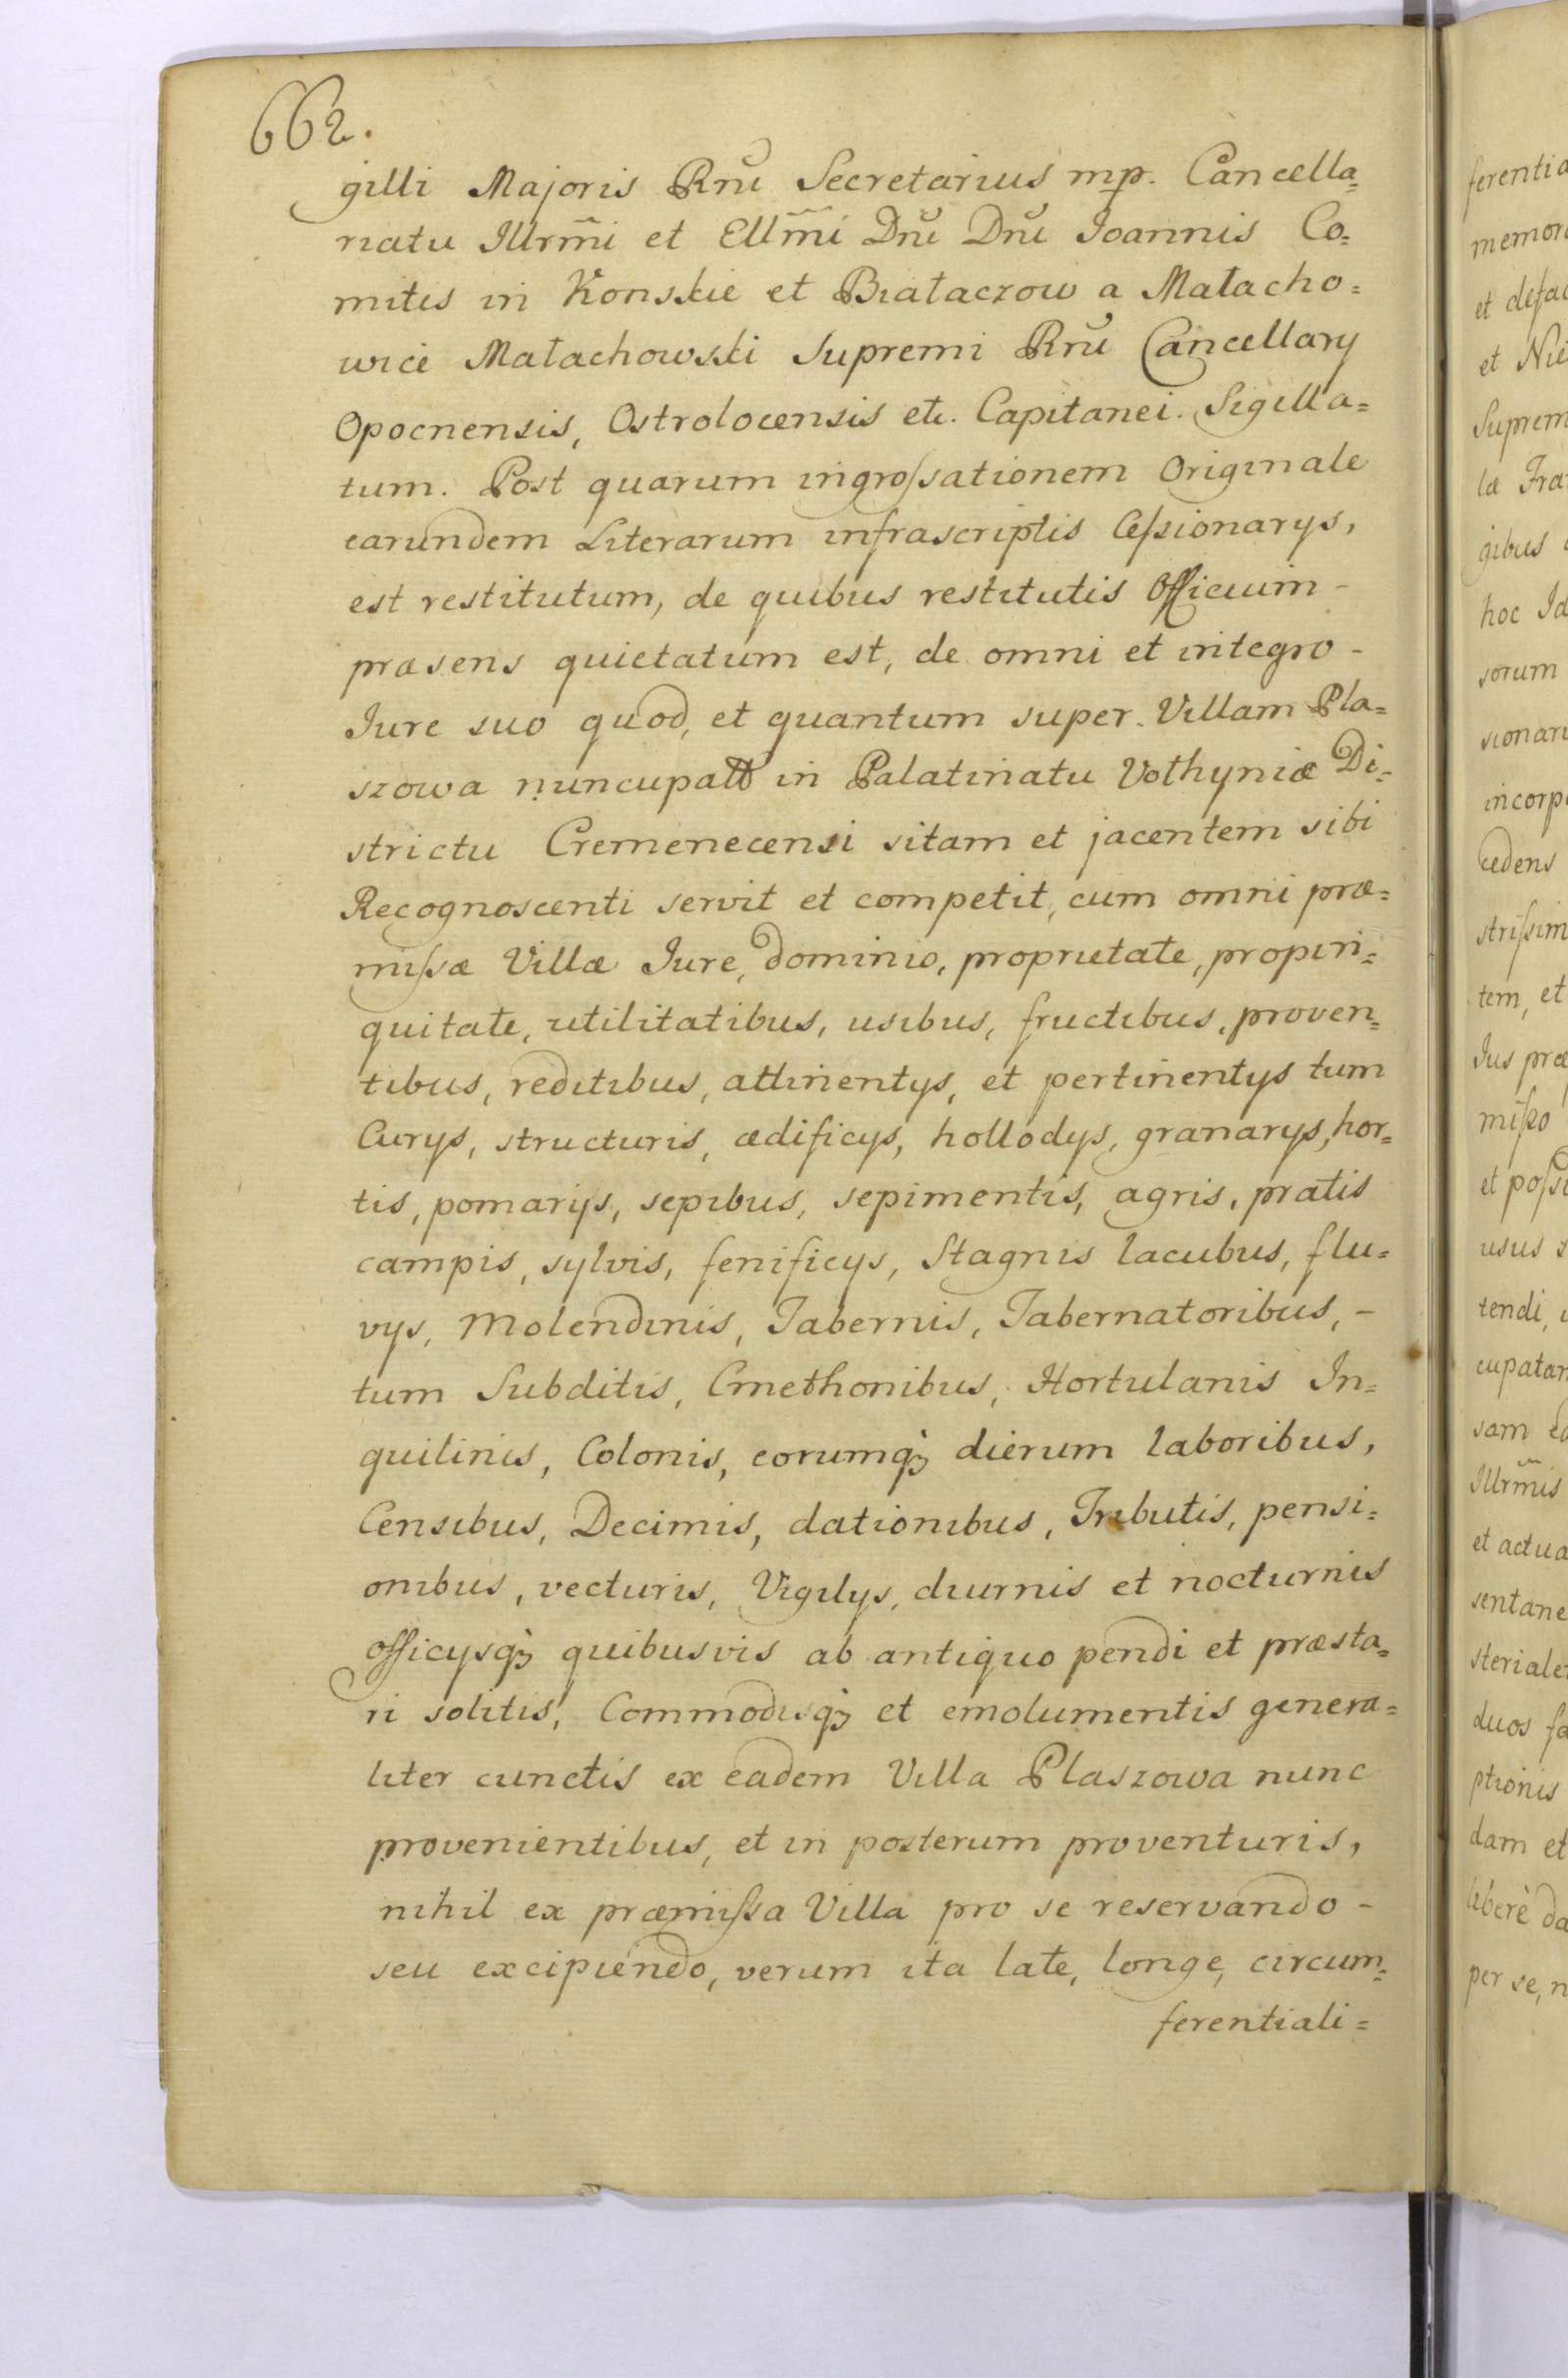 662.
gilli Majoris Rnĩ Secretarius mp. Cancella=
riatu Illrm̃i et Ellm̃i Dnĩ Dnĩ Ioannis Co=
mitis in Konskie et Białaczow a Małacho=
wice Małachowski Supremi Rnĩ Cancellary
Opocnensis, Ostrolocensis etc. Capitanei. Sigilla=
tum. Post quarum ingroſsationem Originale
earundem Literarum infrascriptis Ceſsionarys,
est restitutum, de quibus restitutis Officium -
præsens quietatum est, de omni et integro -
Iure suo quod, et quantum super Villam Pla=
szowa nuncupatt in Palatinatu Volhyniæ Di=
strictu Cremenecensi sitam et jacentem sibi
Recognoscenti servit et competit, cum omni præ=
miſsæ Villæ Iure, dominio, proprietate, propin=
quitate, utilitatibus, usibus, fructibus, proven=
tibus, reditibus, attinentys, et pertinentys tum
Curys, structuris, ædificys, hollodys, granarys, hor=
tis, pomarys, sepibus, sepimentis, agris, pratis
campis, sylvis, fenificys, Stagnis lacubus, flu=
vys, Molendinis, Tabernis, Tabernatoribus, -
tum Subditis, Cmethonibus, Hortulanis In=
quilinis, Colonis, eorumqꝫ dierum laboribus,
Censibus, Decimis, dationibus, Tributis, pensi=
onibus, vecturis, Vigilys, diurnis et nocturnis
officysqꝫ quibusvis ab antiquo pendi et præsta=
ri solitis, Commodisqꝫ et emolumentis genera=
liter cunctis ex eadem Villa Plaszowa nunc
provenientibus, et in posterum proventuris,
nihil ex præmiſsa Villa pro se reservando -
seu excipiendo, verum ita late, longe, circum=
ferentiali=